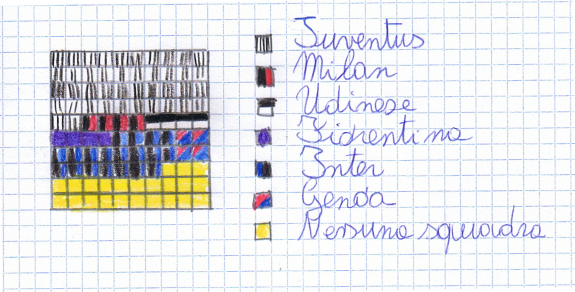 Juventus
Milan
Udinese
Fiorentina
Inter
Genoa
Nessuna squadra